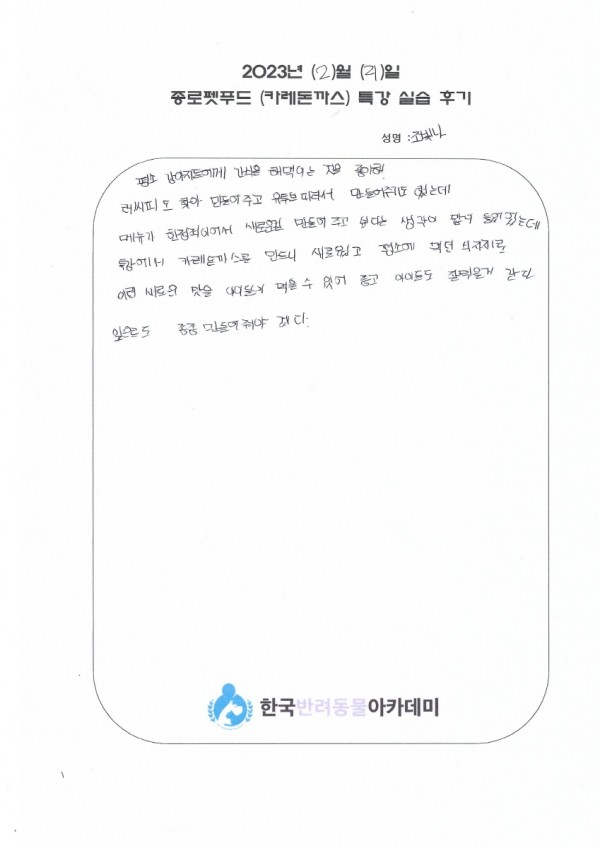 2023년 (2)월 (21)일
종로펫푸드 (카레돈까스) 특강 실습 후기
성명 : 조빛나
평소 강아지들에게 간식을 해먹이는 것을 좋아해
레씨피도 찾아 만들어주고 유튜브 따라서 만들어줘도 봤는데
메뉴가 한정적이어서 새로운걸 만들어 주고 싶다는 생각이 많이 들었는데
특강에서 카레돈까스를 만드니 새로웠고 평소에 먹던 식재료로
이런 새로운 맛을 아이들이 먹을 수 있어 좋고 아이들도 즐거울거 같다
앞으로도 종종 만들어줘야 겠다.
한국반려동물아카데미